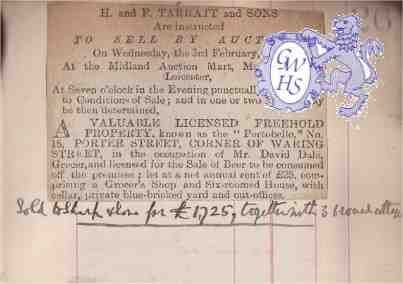 H. and F. TARRATT and SONS
Are instructed
TO SELL BY AUCT
On Wednesday, the 3rd February,
At the Midland Auction Mart, M
Leicester,
At Seven o'clock in the Evening punctuall
to Conditions of Sale; and in one or two
be then determined,
A VALUABLE LICENSED FREEHOLD
PROPERTY, known as the "Portobello," No.
15, PORTER STREET, CORNER OF WARING
STREET, in the occupation of Mr. David Dale,
Grocer, and licensed for the Sale of Beer to be consumed
off the premises; let at a net annual rent of £25, com-
prising a Grocer's Shop and Six-roomed House, with
cellar, private blue-bricked yard and out-offices.
Sold to Sharp & Son for £1,725, together with 3
GWHS